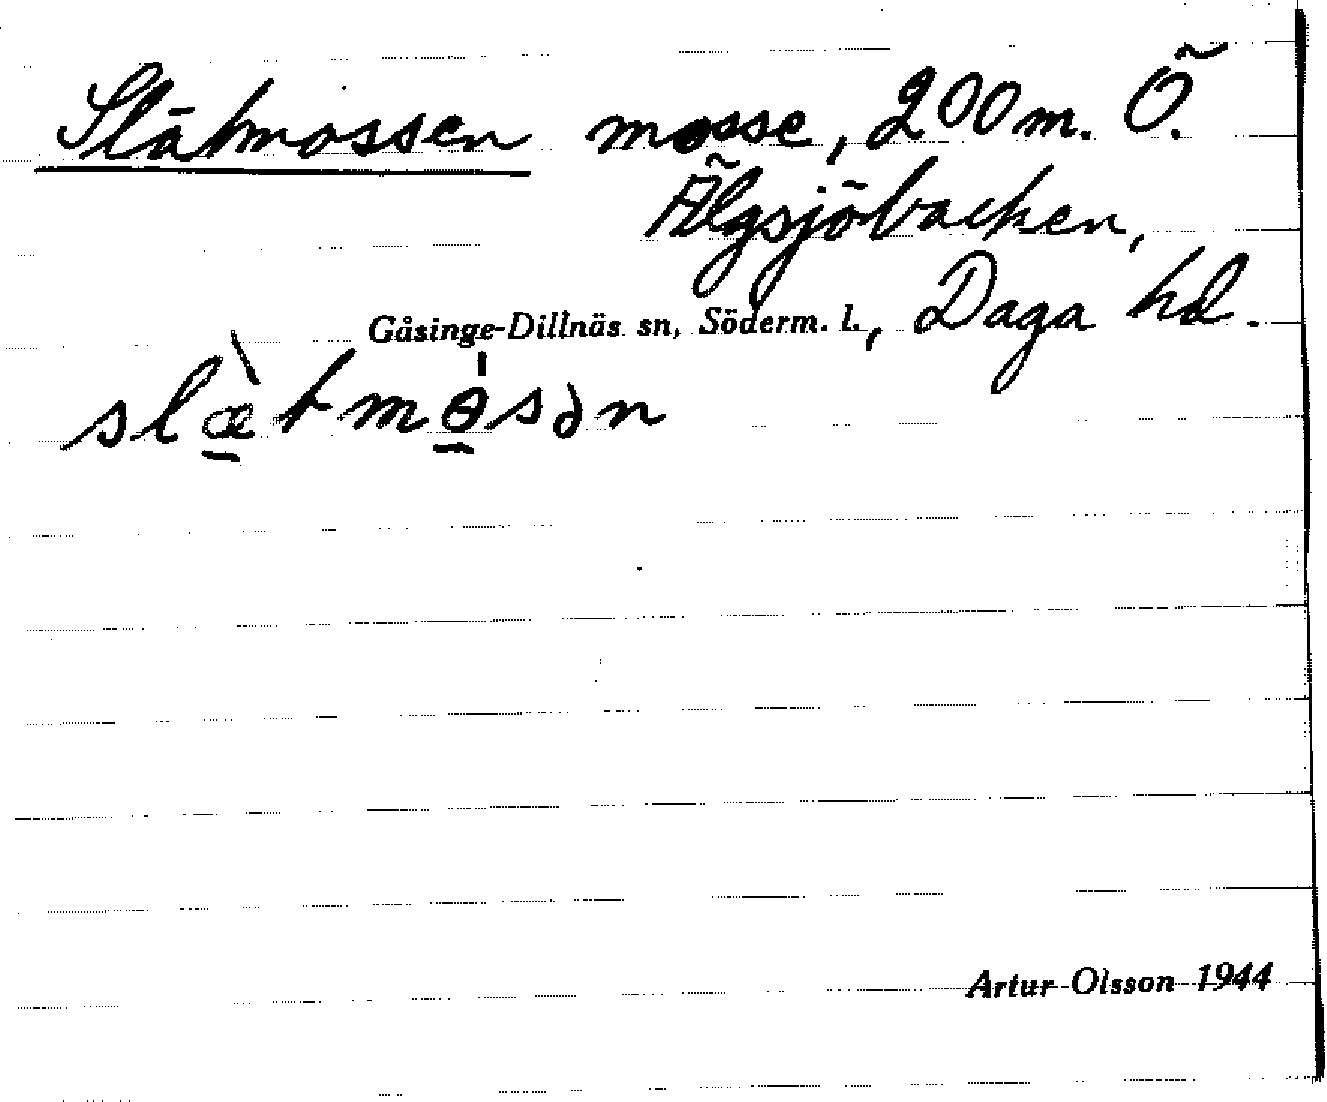 Slätmossen mosse, 200 m. Ö.
Älgsjöbacken,
Gåsinge-Dillnäs sn, Söderm. l., Daga hd.
slæ̠̀tmɵ̠̍sən
Artur Olsson 1944